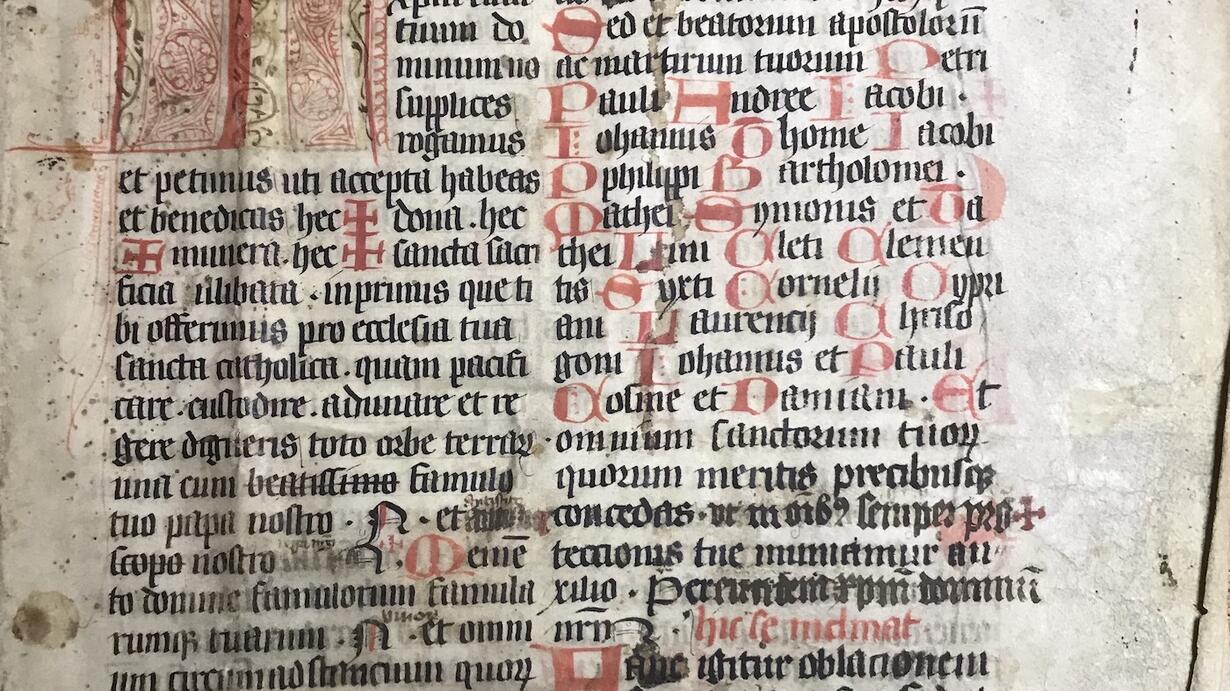 tuum do
minum no
supplices
rogamus
et petimus uti accepta habeas
et benedicas hec ✠ dona . hec
✠ munera . hec ✠ sancta sacri
ficia illibata . inprimis que ti
bi offerimus pro ecclesia tua
sancta catholica . quam pacifi
care . custodire . adunare et re
gere digneris toto orbe terraꝝ
una cum beatissimo famulo
tuo papa nostro . N . et
scopo nostro .N. Memē
to domine famulorum famula
rumqꝫ tuarum . N . et omni
um circumadstancium quoꝝ
Sed et beatorum apostolorū
ac martirum tuorum Petri
Pauli Andree Iacobi .
Iohannis Thome Iacobi
Philippi Bartholomei .
Mathei Symonis et Ta
thei Lini Cleti Clemen
tis Syxti Cornelii Cypri
ani Laurencij Criso
goni Iohannis et Pauli
Cosme et Damiani . Et
omnium sanctorum tuoꝝ
quorum meritis precibusqꝫ
concedas . ut in oībꝰ semper pro
tectionis tue muniamur au
xilio . Per eundem xpm̄ dominū
nr̄m . hic se inclinat
Hanc igitur oblacionem